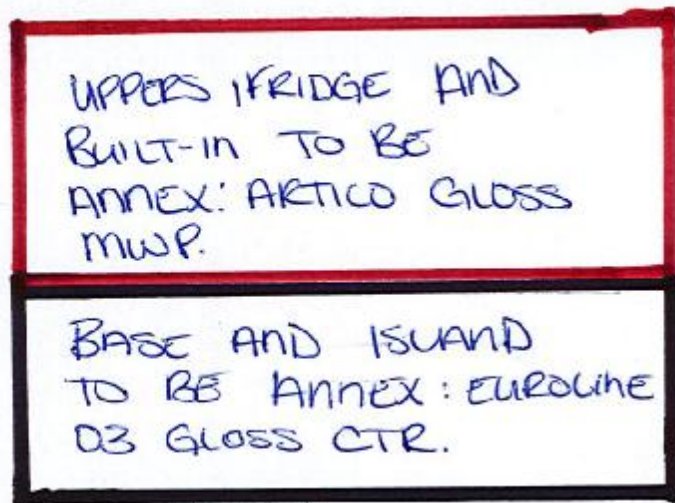 UPPERS, FRIDGE AND
BUILT-IN TO BE
ANNEX: ARTICO GLOSS
MWP.
BASE AND ISLAND
TO BE ANNEX: EUROLINE
03 GLOSS CTR.